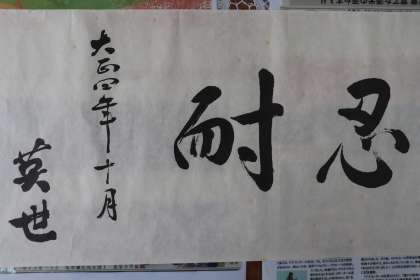 忍耐
大正四年十月
英世